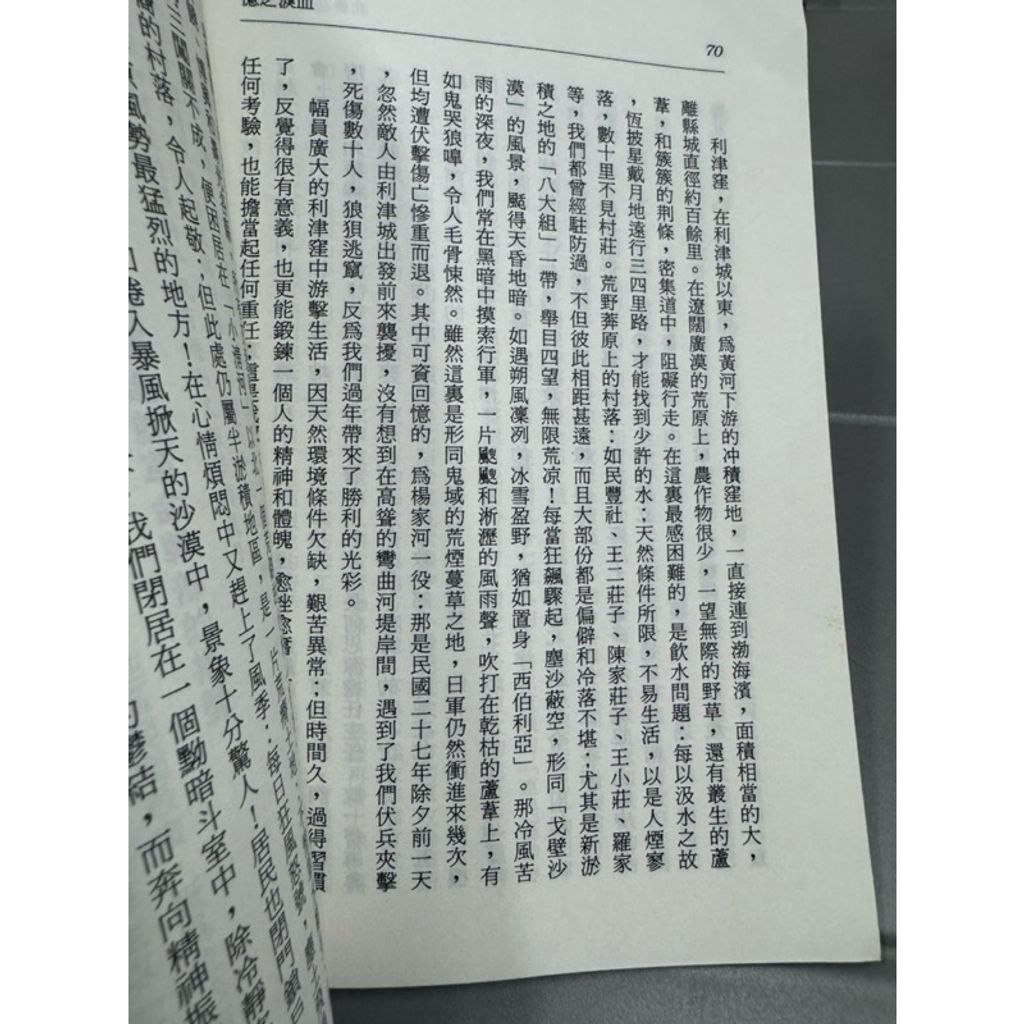 70
憶之淚血
利津窪，在利津城以東，爲黃河下游的冲積窪地，一直接連到渤海濱，面積相當的大，
離縣城直徑約百餘里。在遼闊廣漠的荒原上，農作物很少，一望無際的野草，還有叢生的蘆
葦，和簇簇的荆條，密集道中，阻礙行走。在這裏最感困難的，是飲水問題：每以汲水之故
，恆披星戴月地遠行三四里路，才能找到少許的水；天然條件所限，不易生活，以是人煙寥
落，數十里不見村莊。荒野莽原上的村落：如民豐社、王二莊子、陳家莊子、王小莊、羅家
等，我們都曾經駐防過，不但彼此相距甚遠，而且大部份都是偏僻和冷落不堪；尤其是新淤
積之地的「八大組」一帶，舉目四望，無限荒凉！每當狂飆驟起，塵沙蔽空，形同「戈壁沙
漠」的風景，颳得天昏地暗。如遇朔風凜冽，冰雪盈野，猶如置身「西伯利亞」。那冷風苦
雨的深夜，我們常在黑暗中摸索行軍，一片颼颼和淅瀝的風雨聲，吹打在乾枯的蘆葦上，有
如鬼哭狼嘷，令人毛骨悚然。雖然這裏是形同鬼域的荒煙蔓草之地，日軍仍然衝進來幾次，
但均遭伏擊傷亡慘重而退。其中可資回憶的，爲楊家河一役：那是民國二十七年除夕前一天
，忽然敵人由利津城出發前來襲擾，沒有想到在高聳的彎曲河堤岸間，遇到了我們伏兵夾擊
，死傷數十人，狼狽逃竄，反爲我們過年帶來了勝利的光彩。
幅員廣大的利津窪中游擊生活，因天然環境條件欠缺，艱苦異常；但時間久，過得習慣
了，反覺得很有意義，也更能鍛鍊一個人的精神和體魄，愈挫愈奮
任何考驗，也能擔當起任何重任
小清河」以北一
便困居在
但此處仍屬半淤積地區，是一片荒
的村落，令人起敬
在心情煩悶中又趕上了風季：每日狂風怒號
風勢最猛烈的地方！
景象十分驚人！居民也閉門鎖戶
捲入暴風掀天的沙漠中，
我們閉居在一個黝暗斗室中，除冷靜
結，而奔向精神振